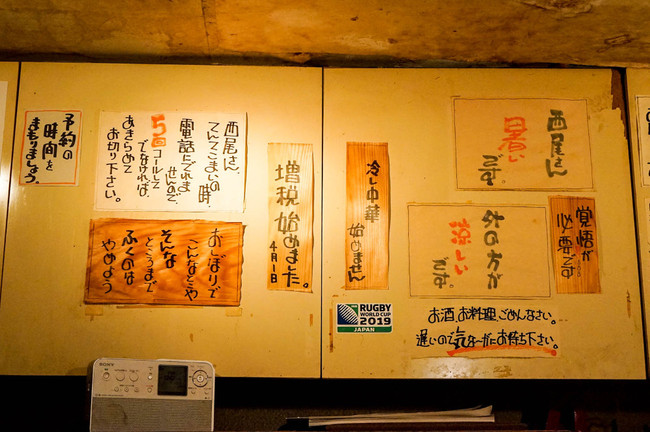 予約の
時間を
まもりましょう。
西尾さん、
てんてこまいの時、
電話にでれま
せんので、
5回コールして
でなければ、
あきらめて
お切り下さい。
おしぼりで
こんなとこや
そんな
ところまで
ふくのは
やめよう
増税始めました。
4月1日
冷し中華
始めません
西尾さん
暑い
です。
外の方が
涼しい
です。
覚悟が
必要です
お酒、お料理、ごめんなさい。
遅いので気ながにお待ち下さい。
RUGBY
WORLD CUP
2019
JAPAN
SONY